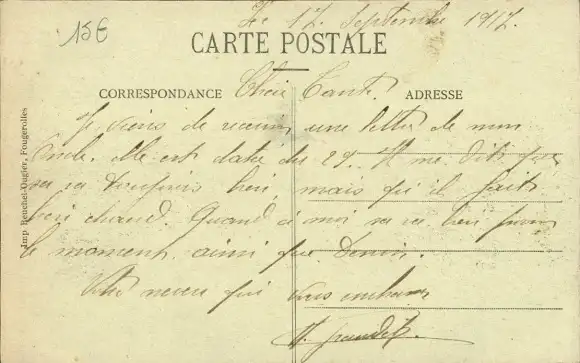 15€
Le 17 Septembre 1917.
CARTE POSTALE
CORRESPONDANCE Chère Tante. ADRESSE
Je viens de recevoir une lettre de mon
Oncle. elle est datée du 29. Il me dit que
sa va toujours bien mais qu'il fait
bien chaud. Quand à moi sa va bien pour
le moment ainsi que Denis.
Votre neveu qui vous embrasse
Imp Reuchet-Ougier, Fougerolles